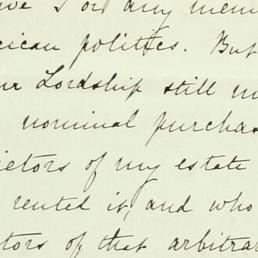 I or any mem
ican politics. But
Lordship still
nominal purchas
ietors of my estate
rented it, and who
tors of that arbitrar